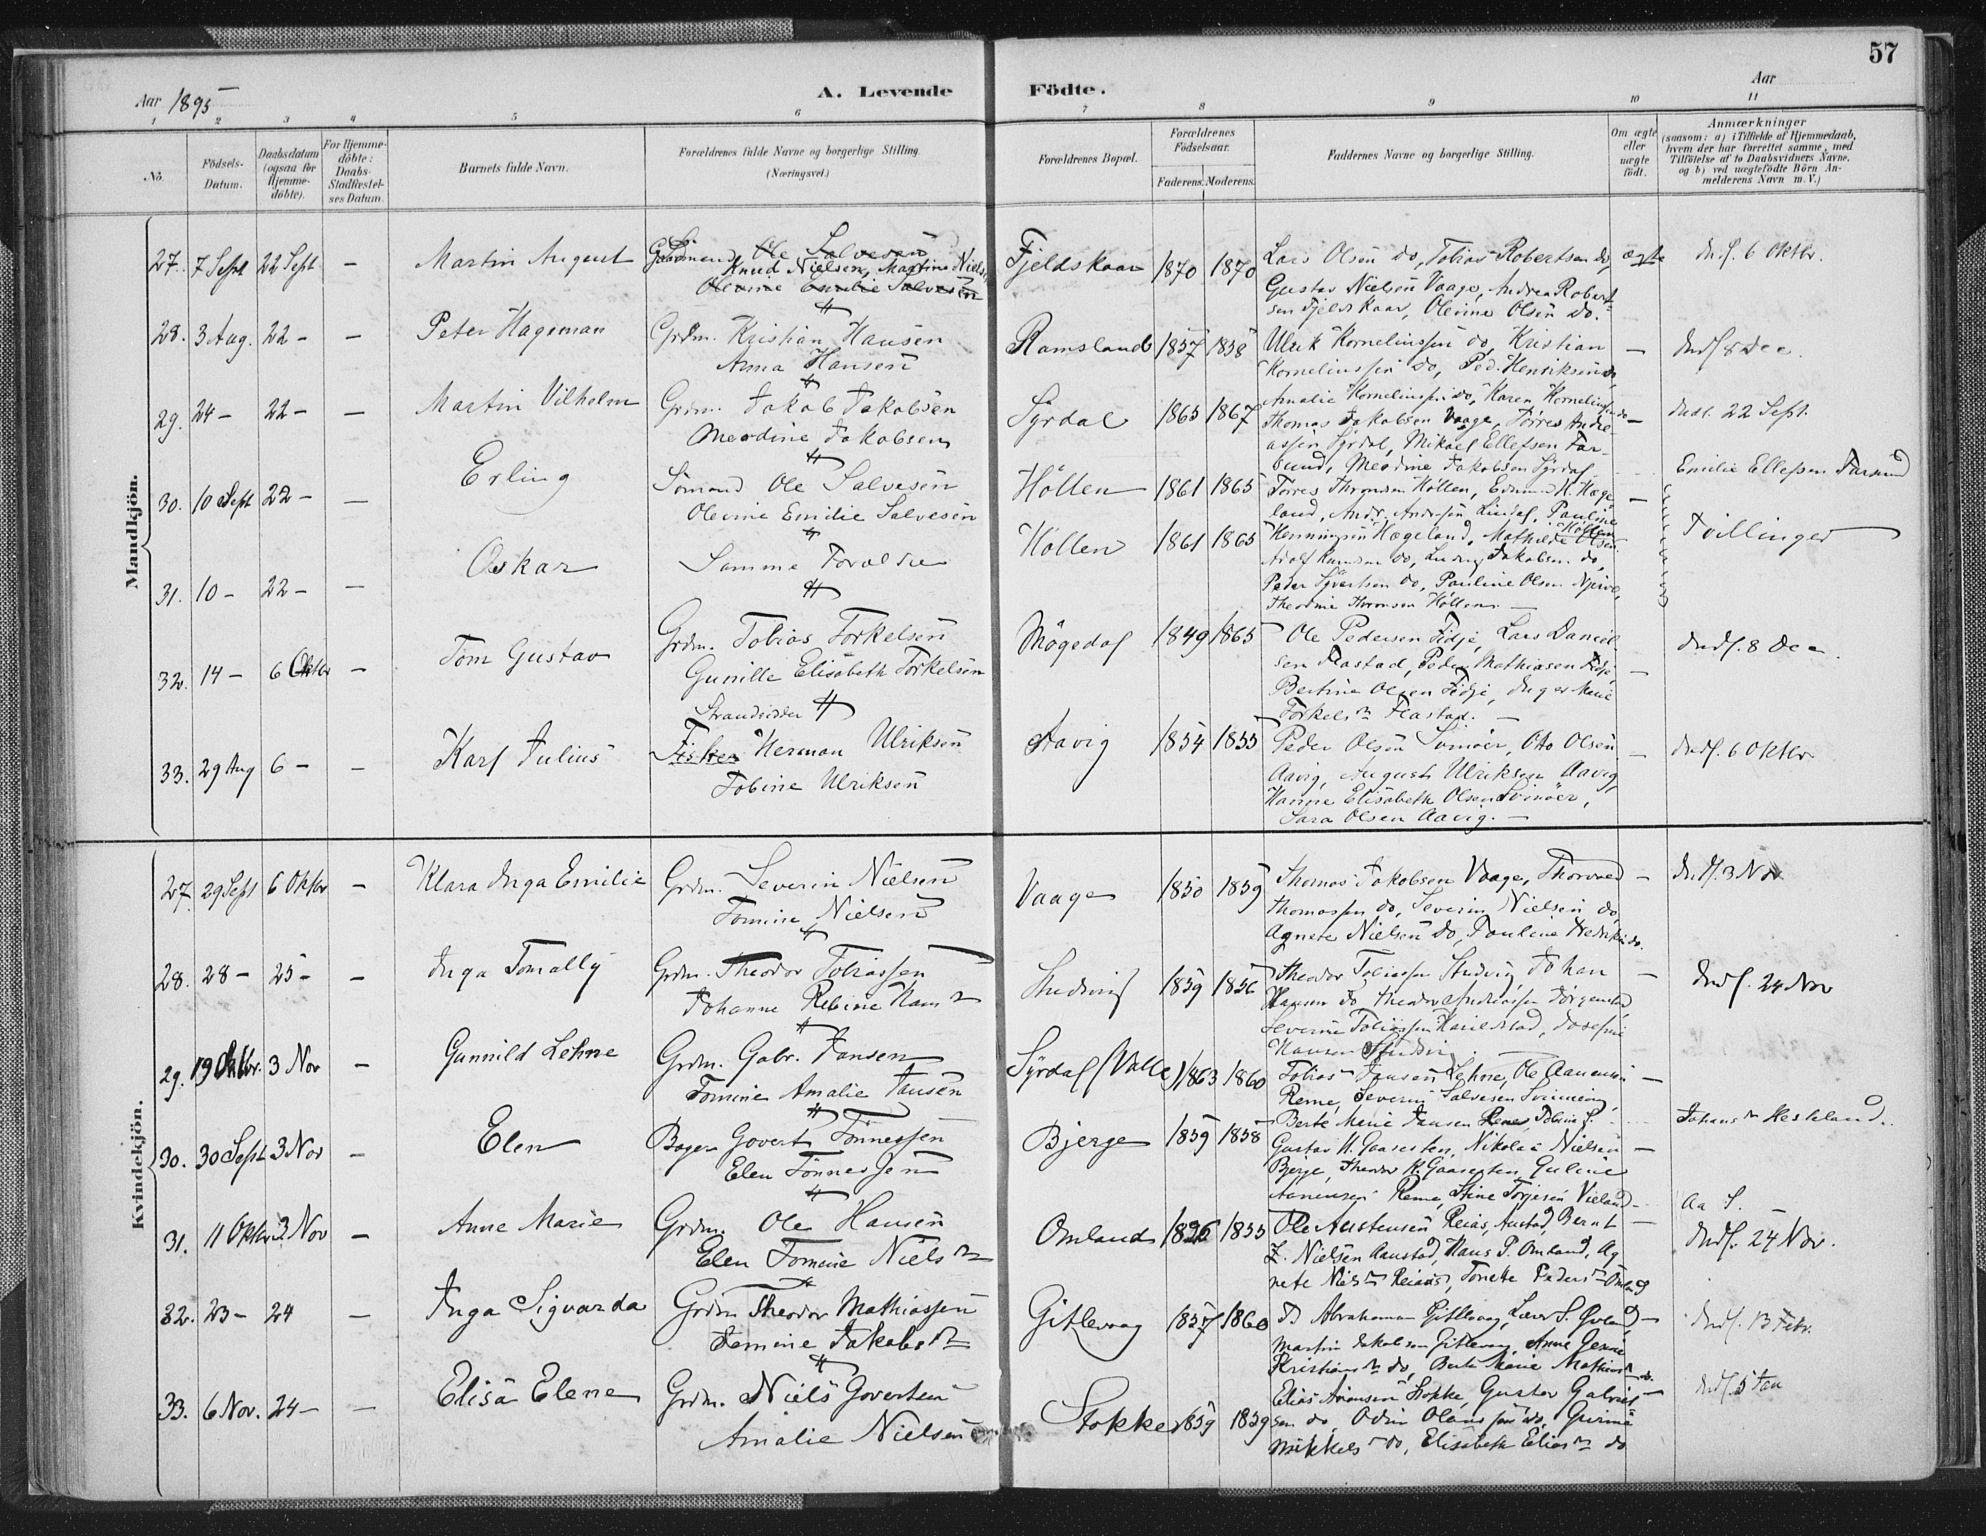 57
Aar 1895
A. Levende
Födte.
Aar
1 2 3 4 5 6 7 8 9 10 11
No.
Födsels-
Datum.
Daabsdatum
(ogsaa for
Hjemme-
döbte).
For Hjemme-
döbte:
Daabs-
Stadfæstel-
ses Datum.
Barnets fulde Navn.
Forældrenes fulde Navne og borgerlige Stilling.
(Næringsvei.)
Forældrenes Bopæl.
Forældrenes
Födselsaar.
Faderens. Moderens.
Faddernes Navne og borgerlige Stilling.
Om ægte
eller
uægte
födt.
Anmærkninger
(saasom: a) i Tilfælde af Hjemmedaab,
hvem der har forrettet samme, med
Tilföielse af to Daabsvidners Navne,
og b) ved uægtefödte Börn An-
melderens Navn m. V.)
Mandkjön.
27. 7 Sept 22 Sept - Martin August
Ole Salvesen
Knud Nielsen, Martine Niels
Olevine Emilie Salvesen
Fjeldskaar 1870 1870
Lars Olsen do, Tobias Robertsen do,
Gustav Nielsen Vaage, Andrea Robert-
sen Fjeldskaar, Olevine Olsen do.
ægte
Indf. 6 Oktbr.
28. 3 Aug. 22 - - Peter Hageman
Grdm. Kristian Hansen
Anna Hansen
Ramsland 1857 1858
Ulrik Kornelinssen do, Kristian
Kornelinssen do, Ped. Henriksen do,
Amalie Kornelinssen do, Karen Kornelinssen do
-
Indf 8 Dec.
29. 24 - 22 - - Martin Vilhelm
Grdm. Jakob Jakobsen
Meodine Jakobsen
Syrdal 1865 1867
Thomas Jakobsen Vaage, Torres Andre-
assen Syrdal, Mikael Ellefsen Far-
sund, Meodine Jakobsen Syrdal
-
Indf. 22 Sept.
Emilie Ellefsen Farsund
30. 10 Sept 22 - - Erling
Sömand Ole Salvesen
Olevine Emilie Salvesen
Höllen 1861 1865
Torres Thronsen Höllen, Edmund H. Hæge-
land, Andr. Andersen Lindal, Pauline
Henningsen Hægeland, Mathilde Olsen
Höllen
-
Tvillinger
31. 10 - 22 - - Oskar
Samme Forældre
Höllen 1861 1865
Adolf Knudsen do, Ludvig Jakobsen do,
Peder Syvertsen do, Pauline Olsen
Theodine Thronsen Höllen. -
32. 14 - 6 Oktbr - Tom Gustav
Grdm. Tobias Torkelsen
Gunille Elisabeth Torkelsen
Mögedal 1849 1865
Ole Pedersen Fidje, Lars Daniel-
sen Flastad, Peder Mathiasen Fidje,
Bertine Olsen Fidje, Inger Marie
Torkelsn Flastad. -
-
Indf. 8 Dec.
33. 29 Aug 6 - - Karl Julius
Strandsidder
Fisker Herman Ulriksen
Tobine Ulriksen
Aavig 1854 1855
Peder Olsen Svinöer, Oto Olsen
Aavig, August Ulriksen Aavig,
Hanne Elisabeth Olsen Svinöer,
Sara Olsen Aavig. -
-
Indf. 6 Oktbr
Kvindekjön.
27. 29 Sept 6 Oktbr - Klara Inga Emilie
Grdm. Severin Nielsen
Tomine Nielsen
Vaage 1850 1859
Thomas Jakobsen Vaage, Thorvald
Thomassen do, Severin Nielsen do,
Agnete Nielsen do, Pauline Hedriksen do.
-
Indf. 3 Nov
28. 28 - 25 - - Inga Tomally
Grdm. Theodor Tobiassen
Johanne Rebine Hansn
1859 1856
Theodor Tobiassen, Johan
Hansen do, Theodor Andreassen Jörgenstad,
Severine Tobiassen, Josefine
Hansen
-
Indf. 24 Nov
29. 19 Oktbr. 3 Nov - Gunnild Lehne
Grdm. Gabr. Jansen
Tomine Amalie Jansen
Syrdal (Valle) 1863 1860
Tobias Jansen Lehne, Ole Aanensen
Reme, Severin Salvesen
Berte Marie Jansen Reme
-
Johansn Hesteland.
30. 30 Sept 3 Nov - Elen
Bager Govert Tönnessen
Elen Tönnessen
Bjerge 1859 1858
Gustav H. Gaasesten, Nikolai Nielsen
Bjerge, Theodor H. Gaasesten, Guline
Aanensen Reme, Stine Torjesen Vieland
-
Aa S.
31. 11 Oktbr 3 Nov - Anne Marie
Grdm. Ole Hansen
Elen Tomine Nielsn
Omland 1856 1855
Ole Austensen Reias, Austad, Bernt
Z. Nielsen Aaustad, Hans P. Omland, Ag-
nete Nielsn Reiaas, Tonette Pedersn Omland
-
Indf. 24 Nov.
32. 23 - 24 - Inga Sigvarda
Grdm Theodor Mathiassen
Temine Jakobsn
Gitlevaag 1857 1860
Abrahamsen Gitlevaag, Lars S.
Martin Jakobsen Gitlevaag, Anne Jensine
Kristiansn do, Berte Marie Mathiasn do.
-
Indf. 13 Febr.
33. 6 Nov. 24 - - Elisa Elene
Grdm. Niels Govertsen
Amalie Nielsen
Stokke 1859 1859
Elias Aronsen Stokke, Gustav Gabriel-
sen do, Odin Olaussen do, Gurine
Mikkelsn do, Elisabeth Eliasn do
-
Indf. 5 Jan